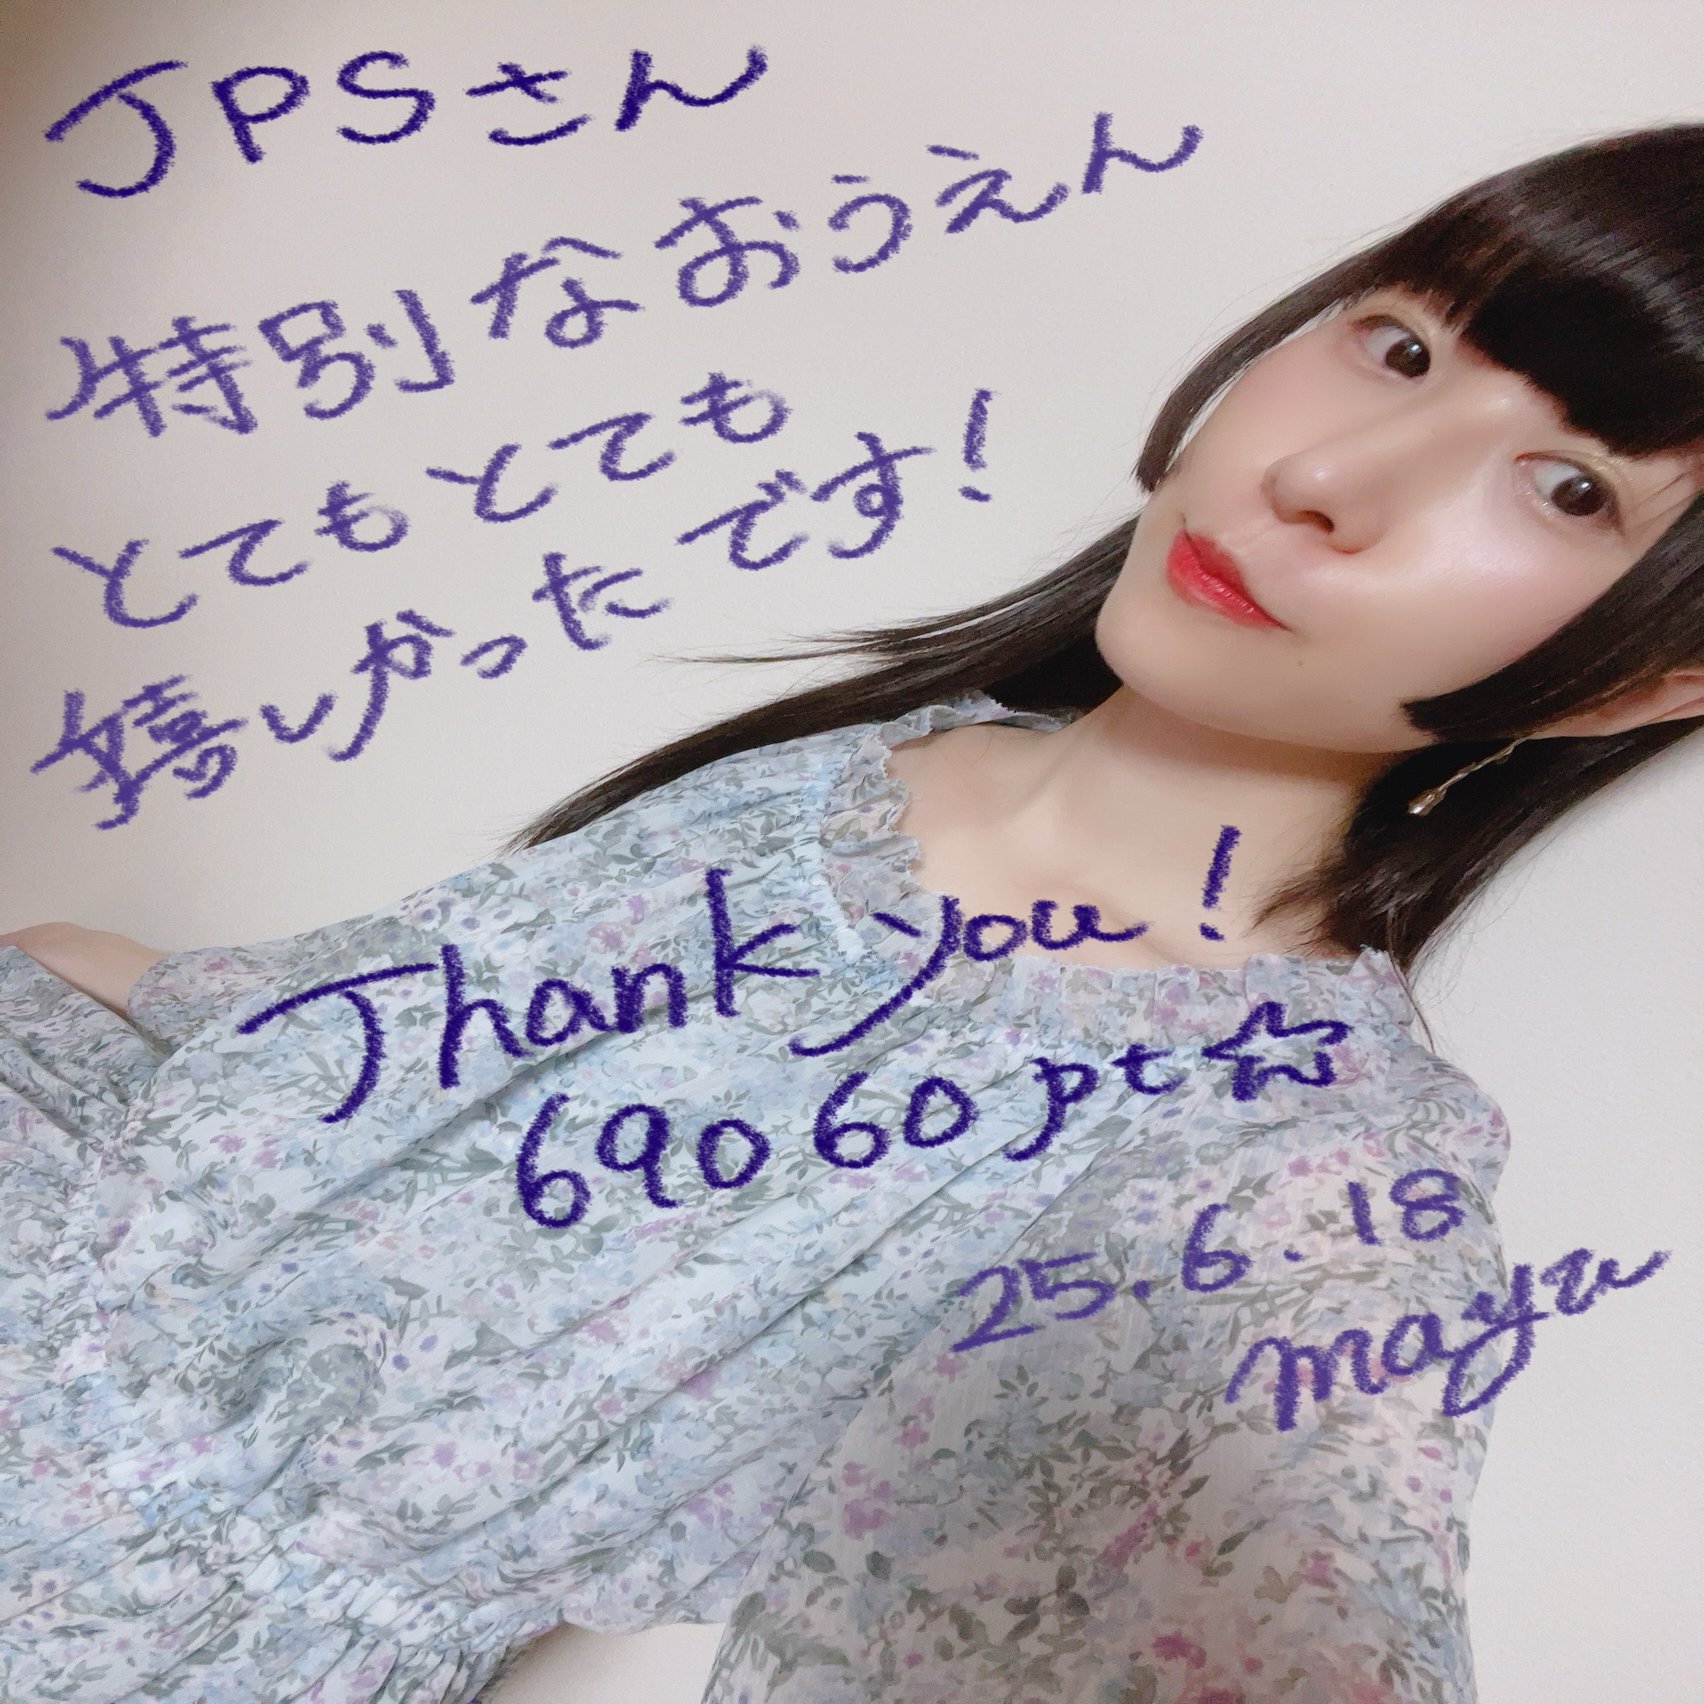 JPSさん
特別なおうえん
とてもとても
嬉しかったです!
Thank you!
69060pt☆
25.6.18
mayu